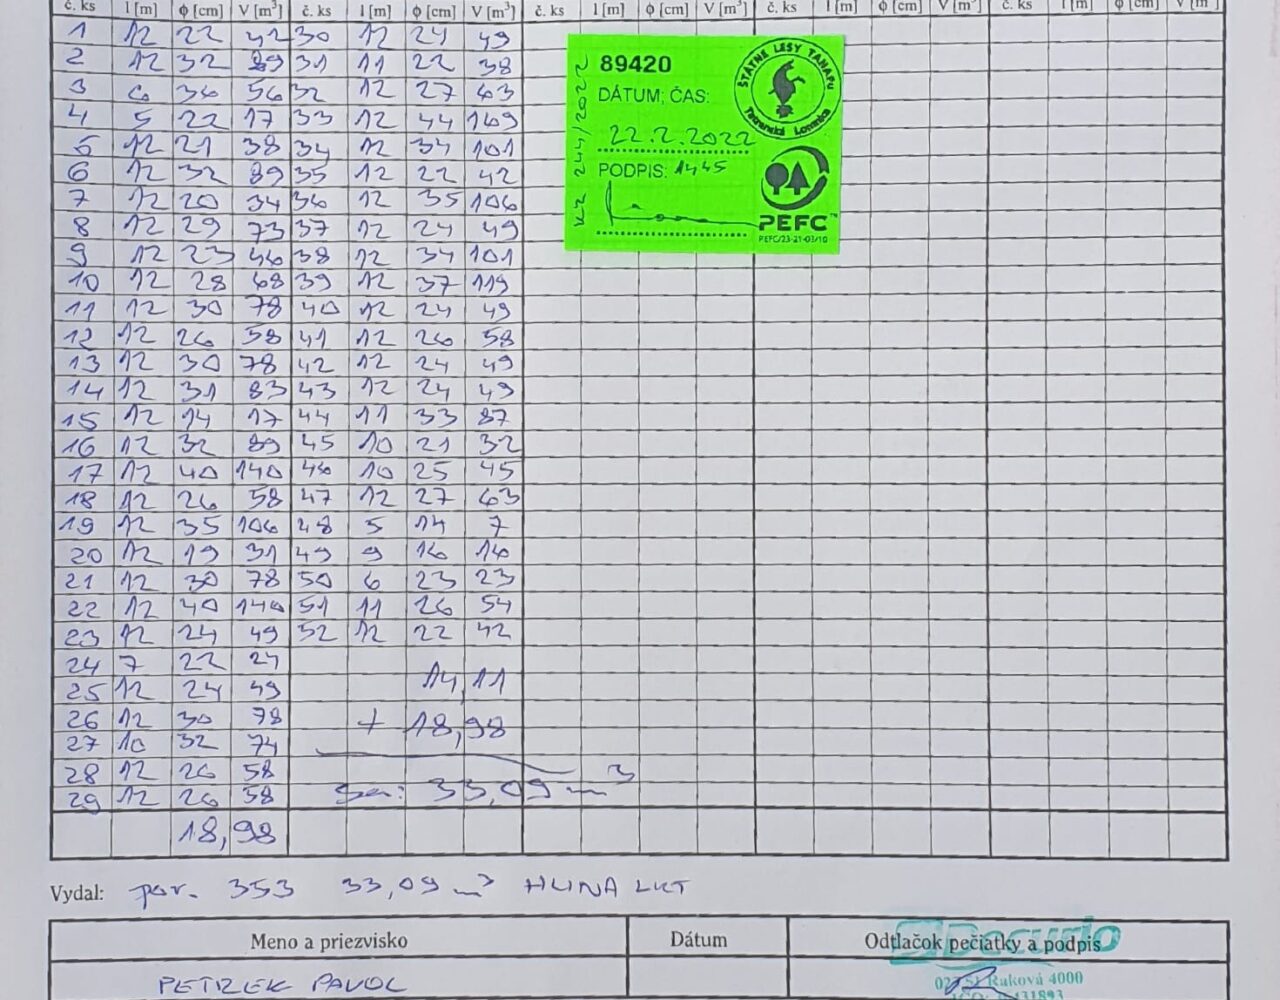 č. ks l [m] ϕ [cm] V [m³] č. ks l [m] ϕ [cm] V [m³] č. ks l [m] ϕ [cm] V [m³] č. ks l [m] ϕ [cm] V [m³] č. ks l [m] ϕ [cm] V [m³]
1 12 22 42 30 12 24 49
2 12 32 89 31 11 22 38
3 6 36 56 32 12 27 63
4 5 22 17 33 12 44 169
5 12 21 38 34 12 34 101
6 12 32 89 35 12 22 42
7 12 20 34 36 12 35 106
8 12 29 73 37 12 24 49
9 12 23 46 38 12 34 101
10 12 28 68 39 12 37 119
11 12 30 78 40 12 24 49
12 12 26 58 41 12 26 58
13 12 30 78 42 12 24 49
14 12 31 83 43 12 24 49
15 12 14 17 44 11 33 87
16 12 32 89 45 10 21 32
17 12 40 140 46 10 25 45
18 12 26 58 47 12 27 63
19 12 35 106 48 5 14 7
20 12 19 31 49 9 16 16
21 12 30 78 50 6 23 23
22 12 40 140 51 11 26 54
23 12 24 49 52 12 22 42
24 7 22 24
25 12 24 49
14,11
26 12 30 78
+ 18,98
27 10 32 74
28 12 26 58
29 12 26 58
33,09 m³
18,98
89420
DÁTUM; ČAS:
22.2.2022
PODPIS: 1445
244/2022
ŠTÁTNE LESY TANAPu
Tatranská Lomnica
PEFC™
PEFC/23-21-03/10
Vydal: por. 353 33,09 m³ HLINA LKT
Meno a priezvisko Dátum Odtlačok pečiatky a podpis
Decurio
PETRZEK PAVOL
Raková 4000